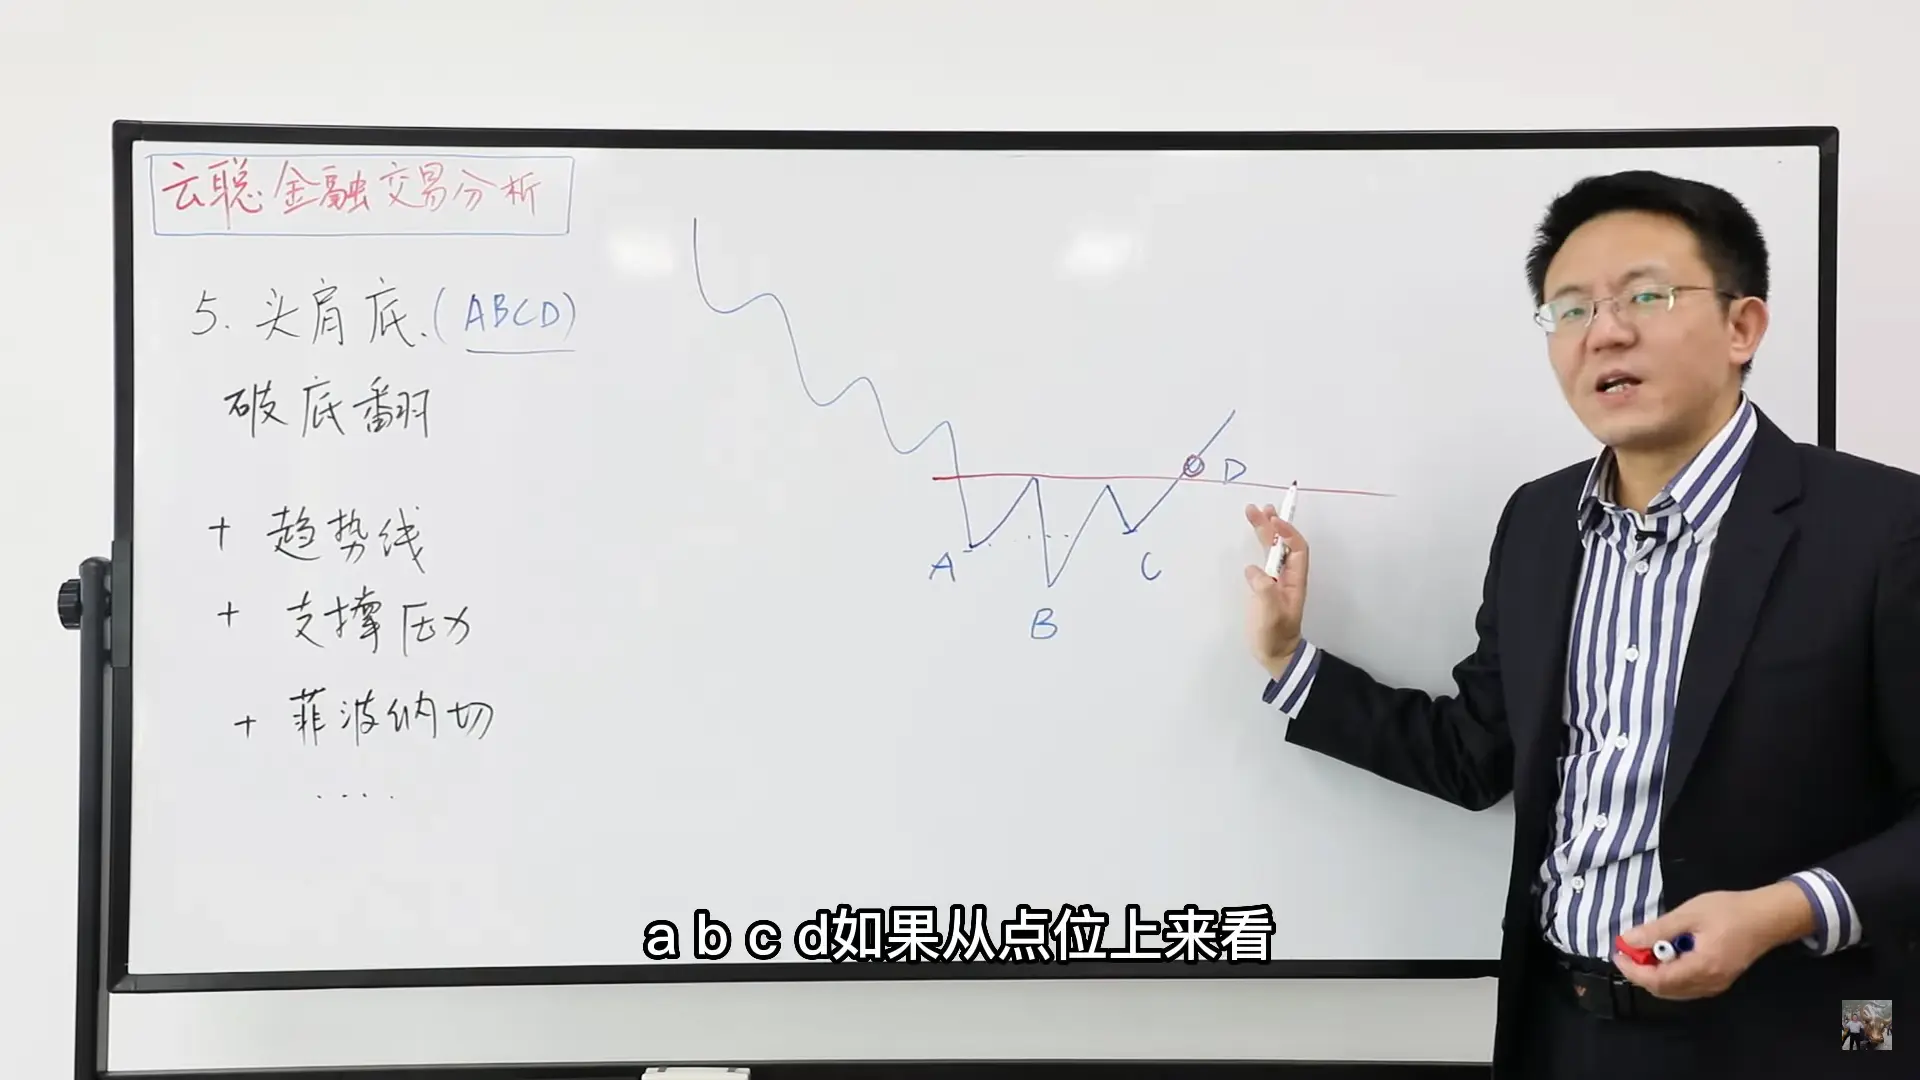 云聪金融交易分析
5. 头肩底.(ABCD)
破底翻
+ 趋势线
+ 支撑压力
+ 菲波纳切
....
D
A
C
B
a b c d如果从点位上来看